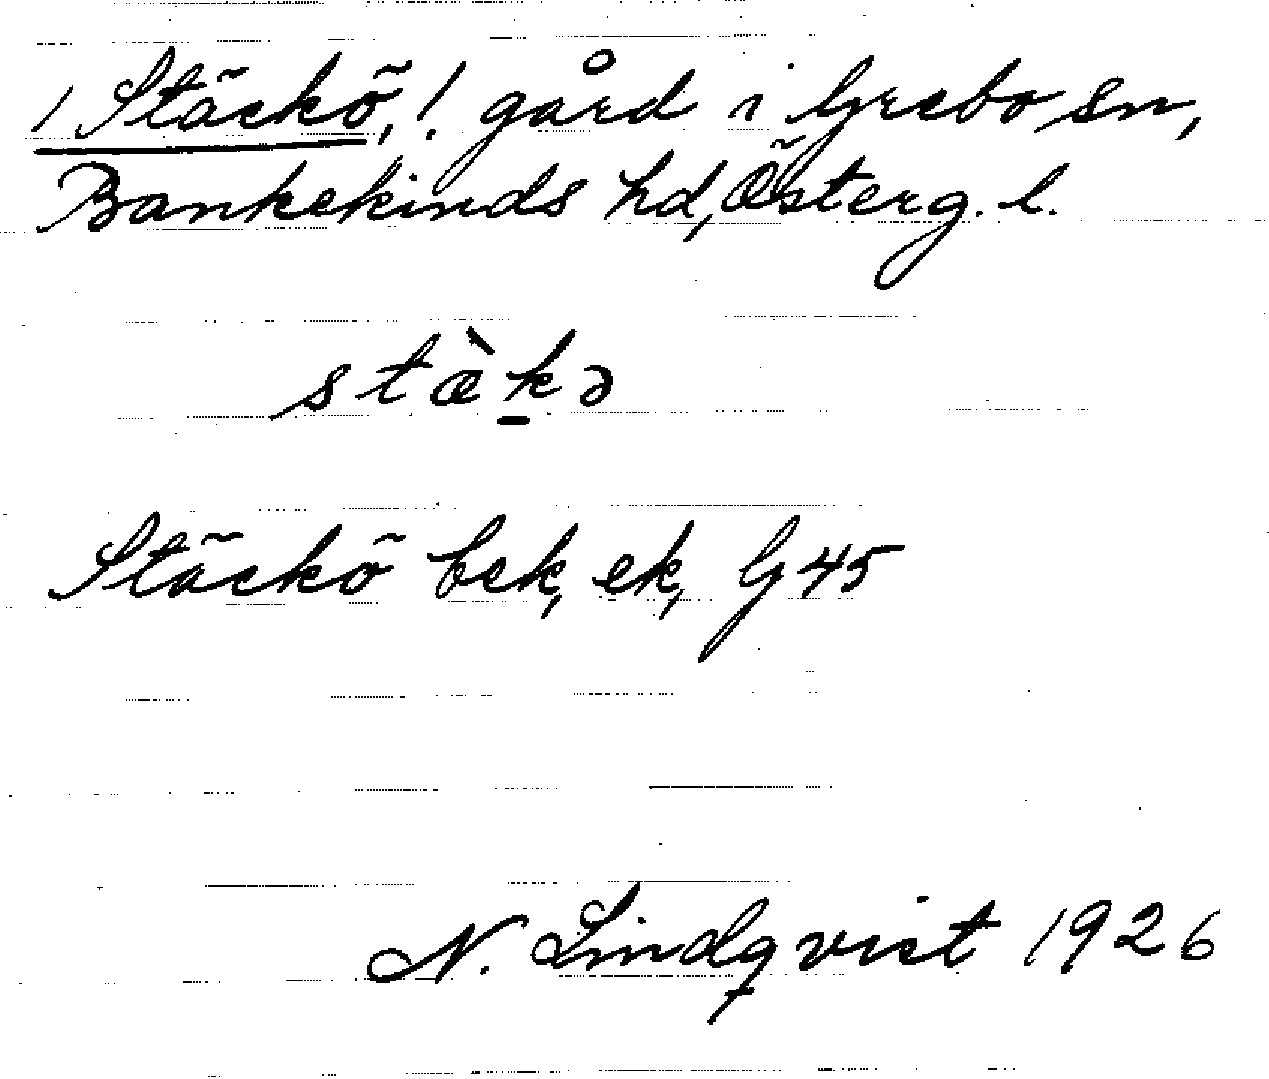 / Stäckö, ! gård i Grebo sn,
Bankekinds hd, Österg. l.
stæ̀k̠ə
Stäckö bek, ek, G 45
N. Lindqvist 1926